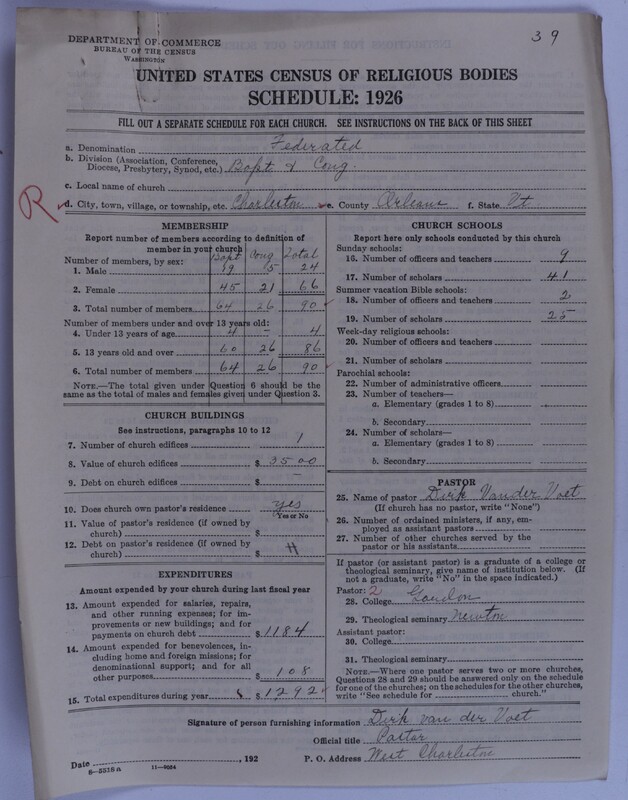 DEPARTMENT OF COMMERCE
BUREAU OF THE CENSUS
WASHINGTON
39
UNITED STATES CENSUS OF RELIGIOUS BODIES
SCHEDULE: 1926
FILL OUT A SEPARATE SCHEDULE FOR EACH CHURCH. SEE INSTRUCTIONS ON THE BACK OF THIS SHEET
a. Denomination Federated
b. Division (Association, Conference, Diocese, Presbytery, Synod, etc.) Bapt & Cong.
c. Local name of church
R
d. City, town, village, or township, etc. Charleston e. County Orleans f. State Vt.
MEMBERSHIP
Report number of members according to definition of member in your church
Number of members, by sex: Bapt Cong Total
1. Male 19 5 24
2. Female 45 21 66
3. Total number of members 64 26 90
Number of members under and over 13 years old:
4. Under 13 years of age 4 - 4
5. 13 years old and over 60 26 86
6. Total number of members 64 26 90
NOTE.—The total given under Question 6 should be the
same as the total of males and females given under Question 3.
CHURCH BUILDINGS
See instructions, paragraphs 10 to 12
7. Number of church edifices 1
8. Value of church edifices $3500
9. Debt on church edifices $ -
10. Does church own pastor's residence? yes
(Yes or No)
11. Value of pastor's residence (if owned by
church) $
12. Debt on pastor's residence (if owned by
church) $
EXPENDITURES
Amount expended by your church during last fiscal year
13. Amount expended for salaries, repairs,
and other running expenses; for im-
provements or new buildings; and for
payments on church debt $1184
14. Amount expended for benevolences, in-
cluding home and foreign missions; for
denominational support; and for all
other purposes 108
15. Total expenditures during year $1292
CHURCH SCHOOLS
Report here only schools conducted by this church
Sunday schools:
16. Number of officers and teachers 9
17. Number of scholars 41
Summer vacation Bible schools:
18. Number of officers and teachers 2
19. Number of scholars 25
Week-day religious schools:
20. Number of officers and teachers
21. Number of scholars
Parochial schools:
22. Number of administrative officers
23. Number of teachers—
a. Elementary (grades 1 to 8)
b. Secondary
24. Number of scholars—
a. Elementary (grades 1 to 8)
b. Secondary
PASTOR
25. Name of pastor Dirk Vander Voet
(If church has no pastor, write "None")
26. Number of ordained ministers, if any, em-
ployed as assistant pastors
27. Number of other churches served by the
pastor or his assistants
If pastor (or assistant pastor) is a graduate of a college or
theological seminary, give name of institution below. (If
not a graduate, write "No" in the space indicated.)
Pastor: 2
28. College Gordon
29. Theological seminary Newton
Assistant pastor:
30. College
31. Theological seminary
NOTE.—Where one pastor serves two or more churches,
Questions 28 and 29 should be answered only on the schedule
for one of the churches; on the schedules for the other churches,
write "See schedule for church."
Signature of person furnishing information Dirk van der Voet
Official title Pastor
Date , 192 P. O. Address West Charleston
8-5518a 11-9034